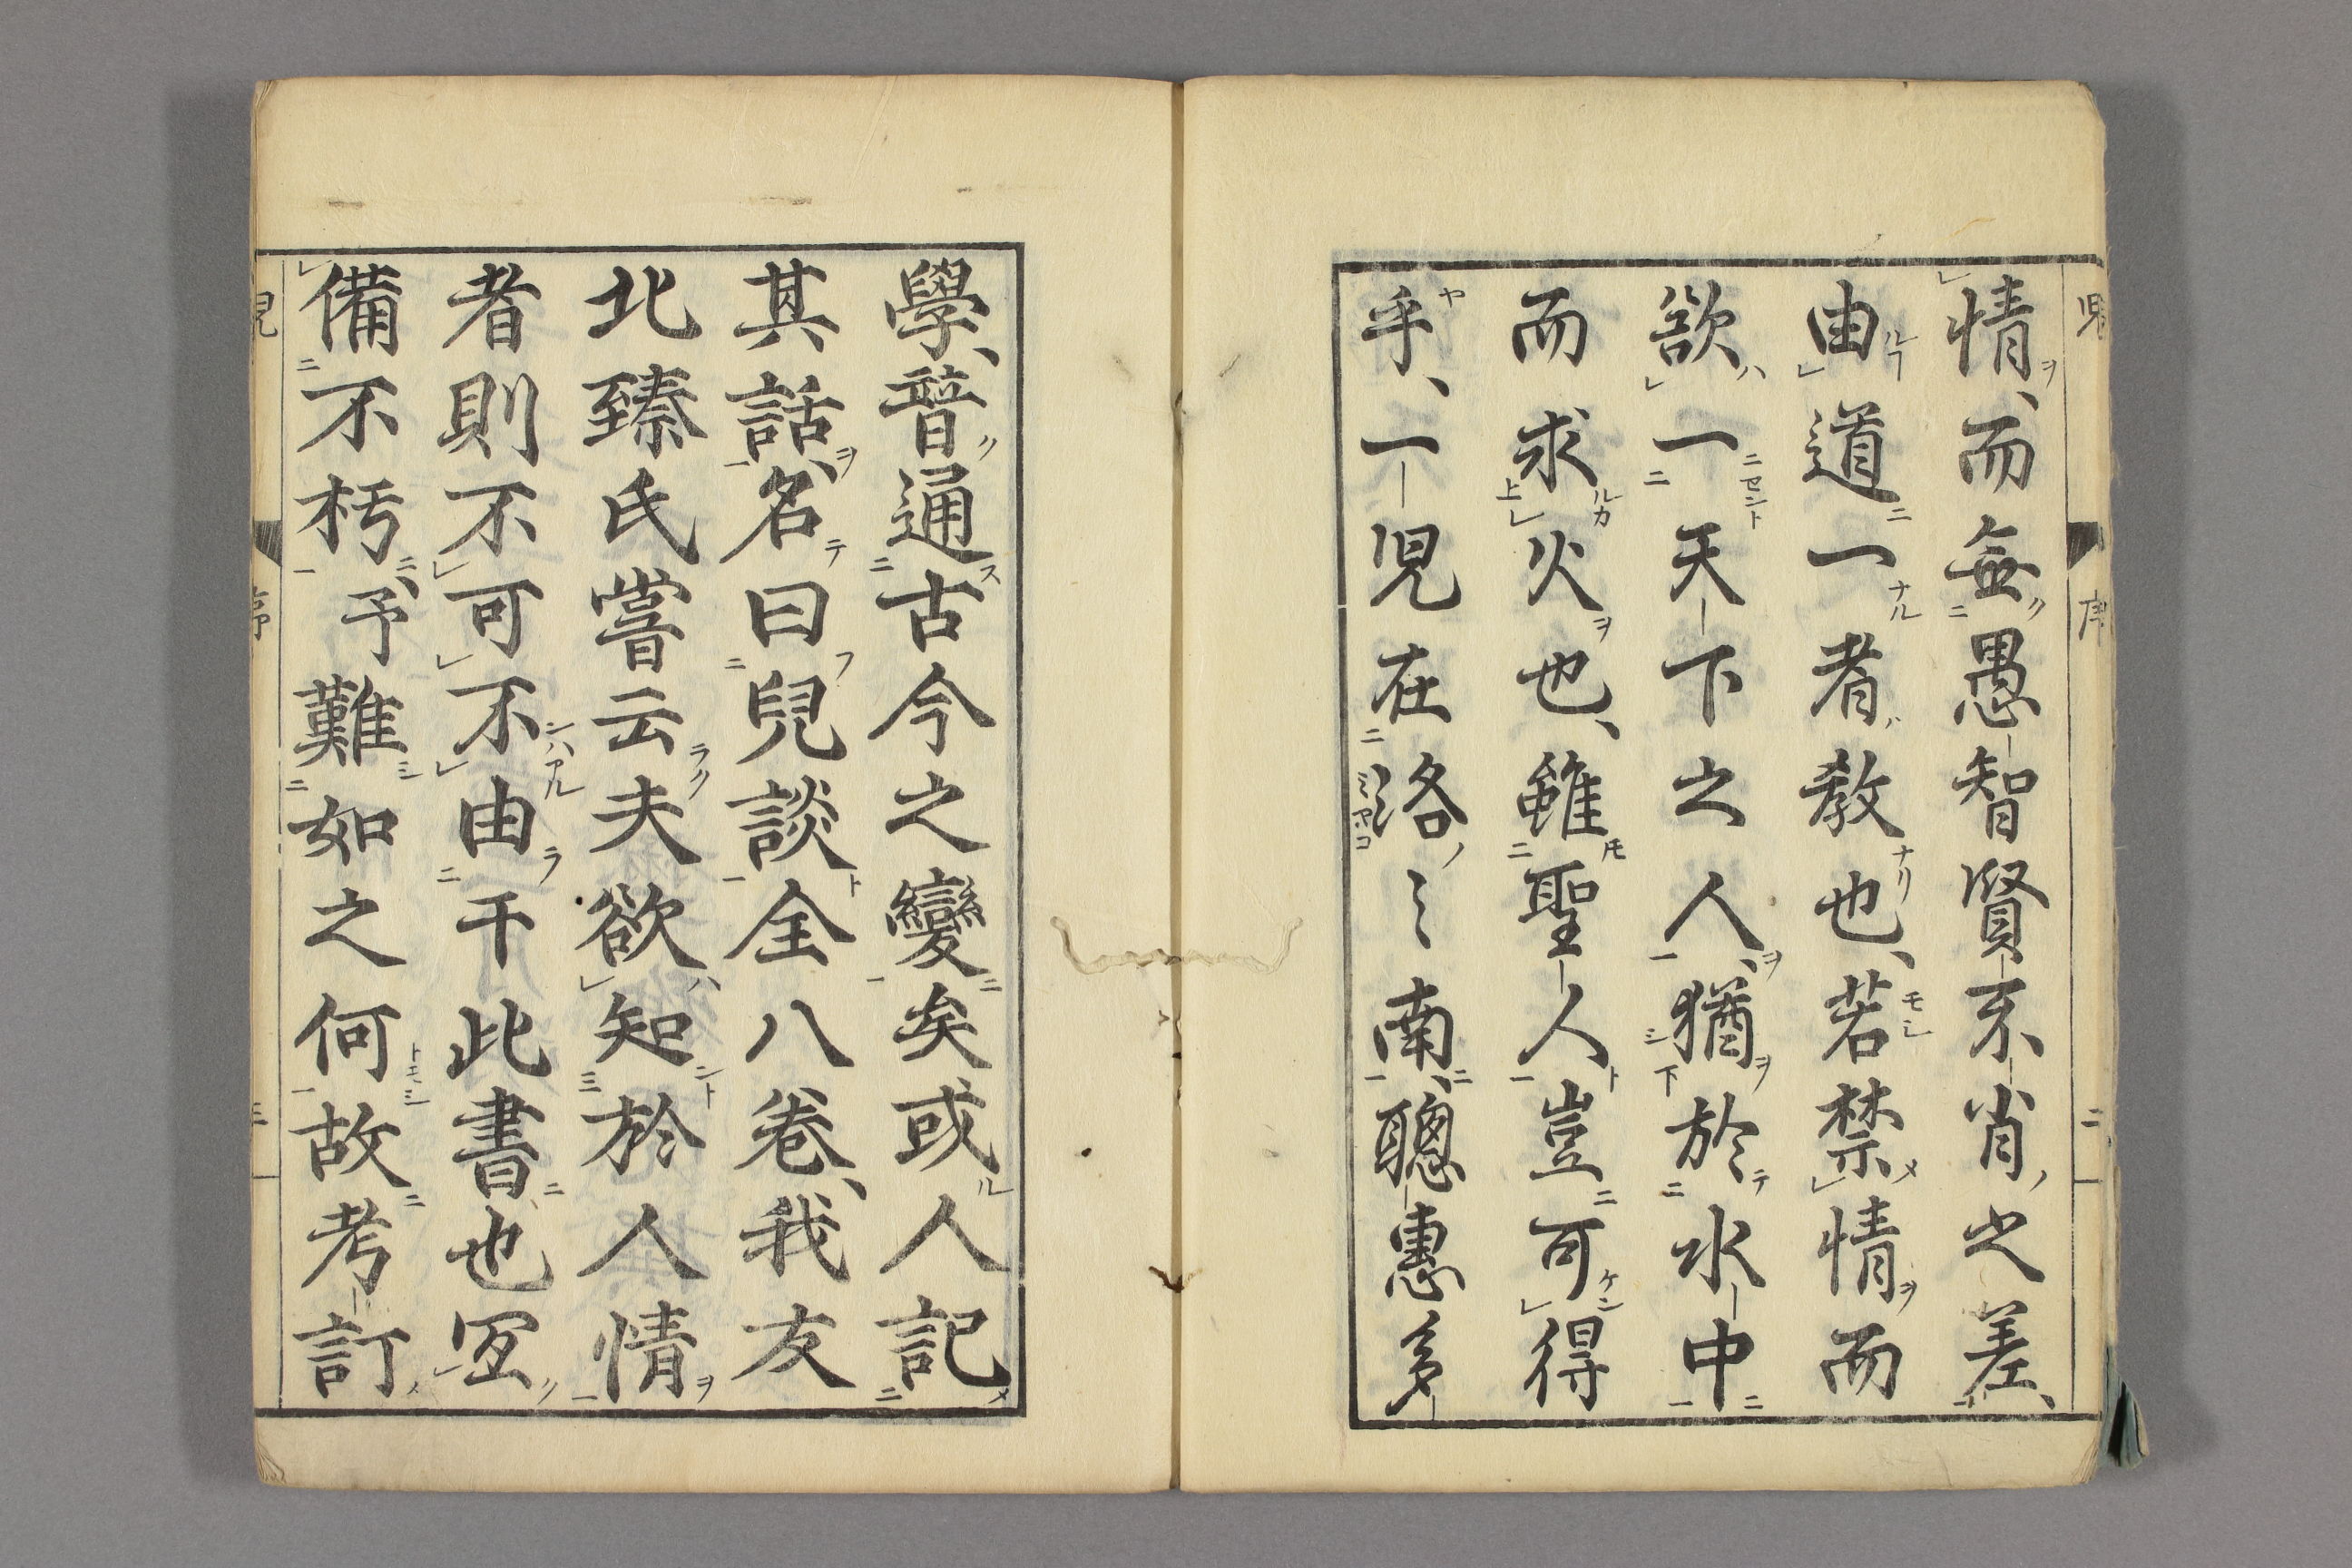 情、而無愚智賢不肖之差、
由道一者教也、若禁情而
欲一天下之人、猶於水中
而求火也、雖聖人豈可得
乎、一児在洛〻南、聰惠多
學、普通古今之變矣或人記
其話、名曰兒談全八卷、我友
北臻氏嘗云夫欲知於人情
者則不可不由于此書也冝
備不朽、予難如之何故考訂